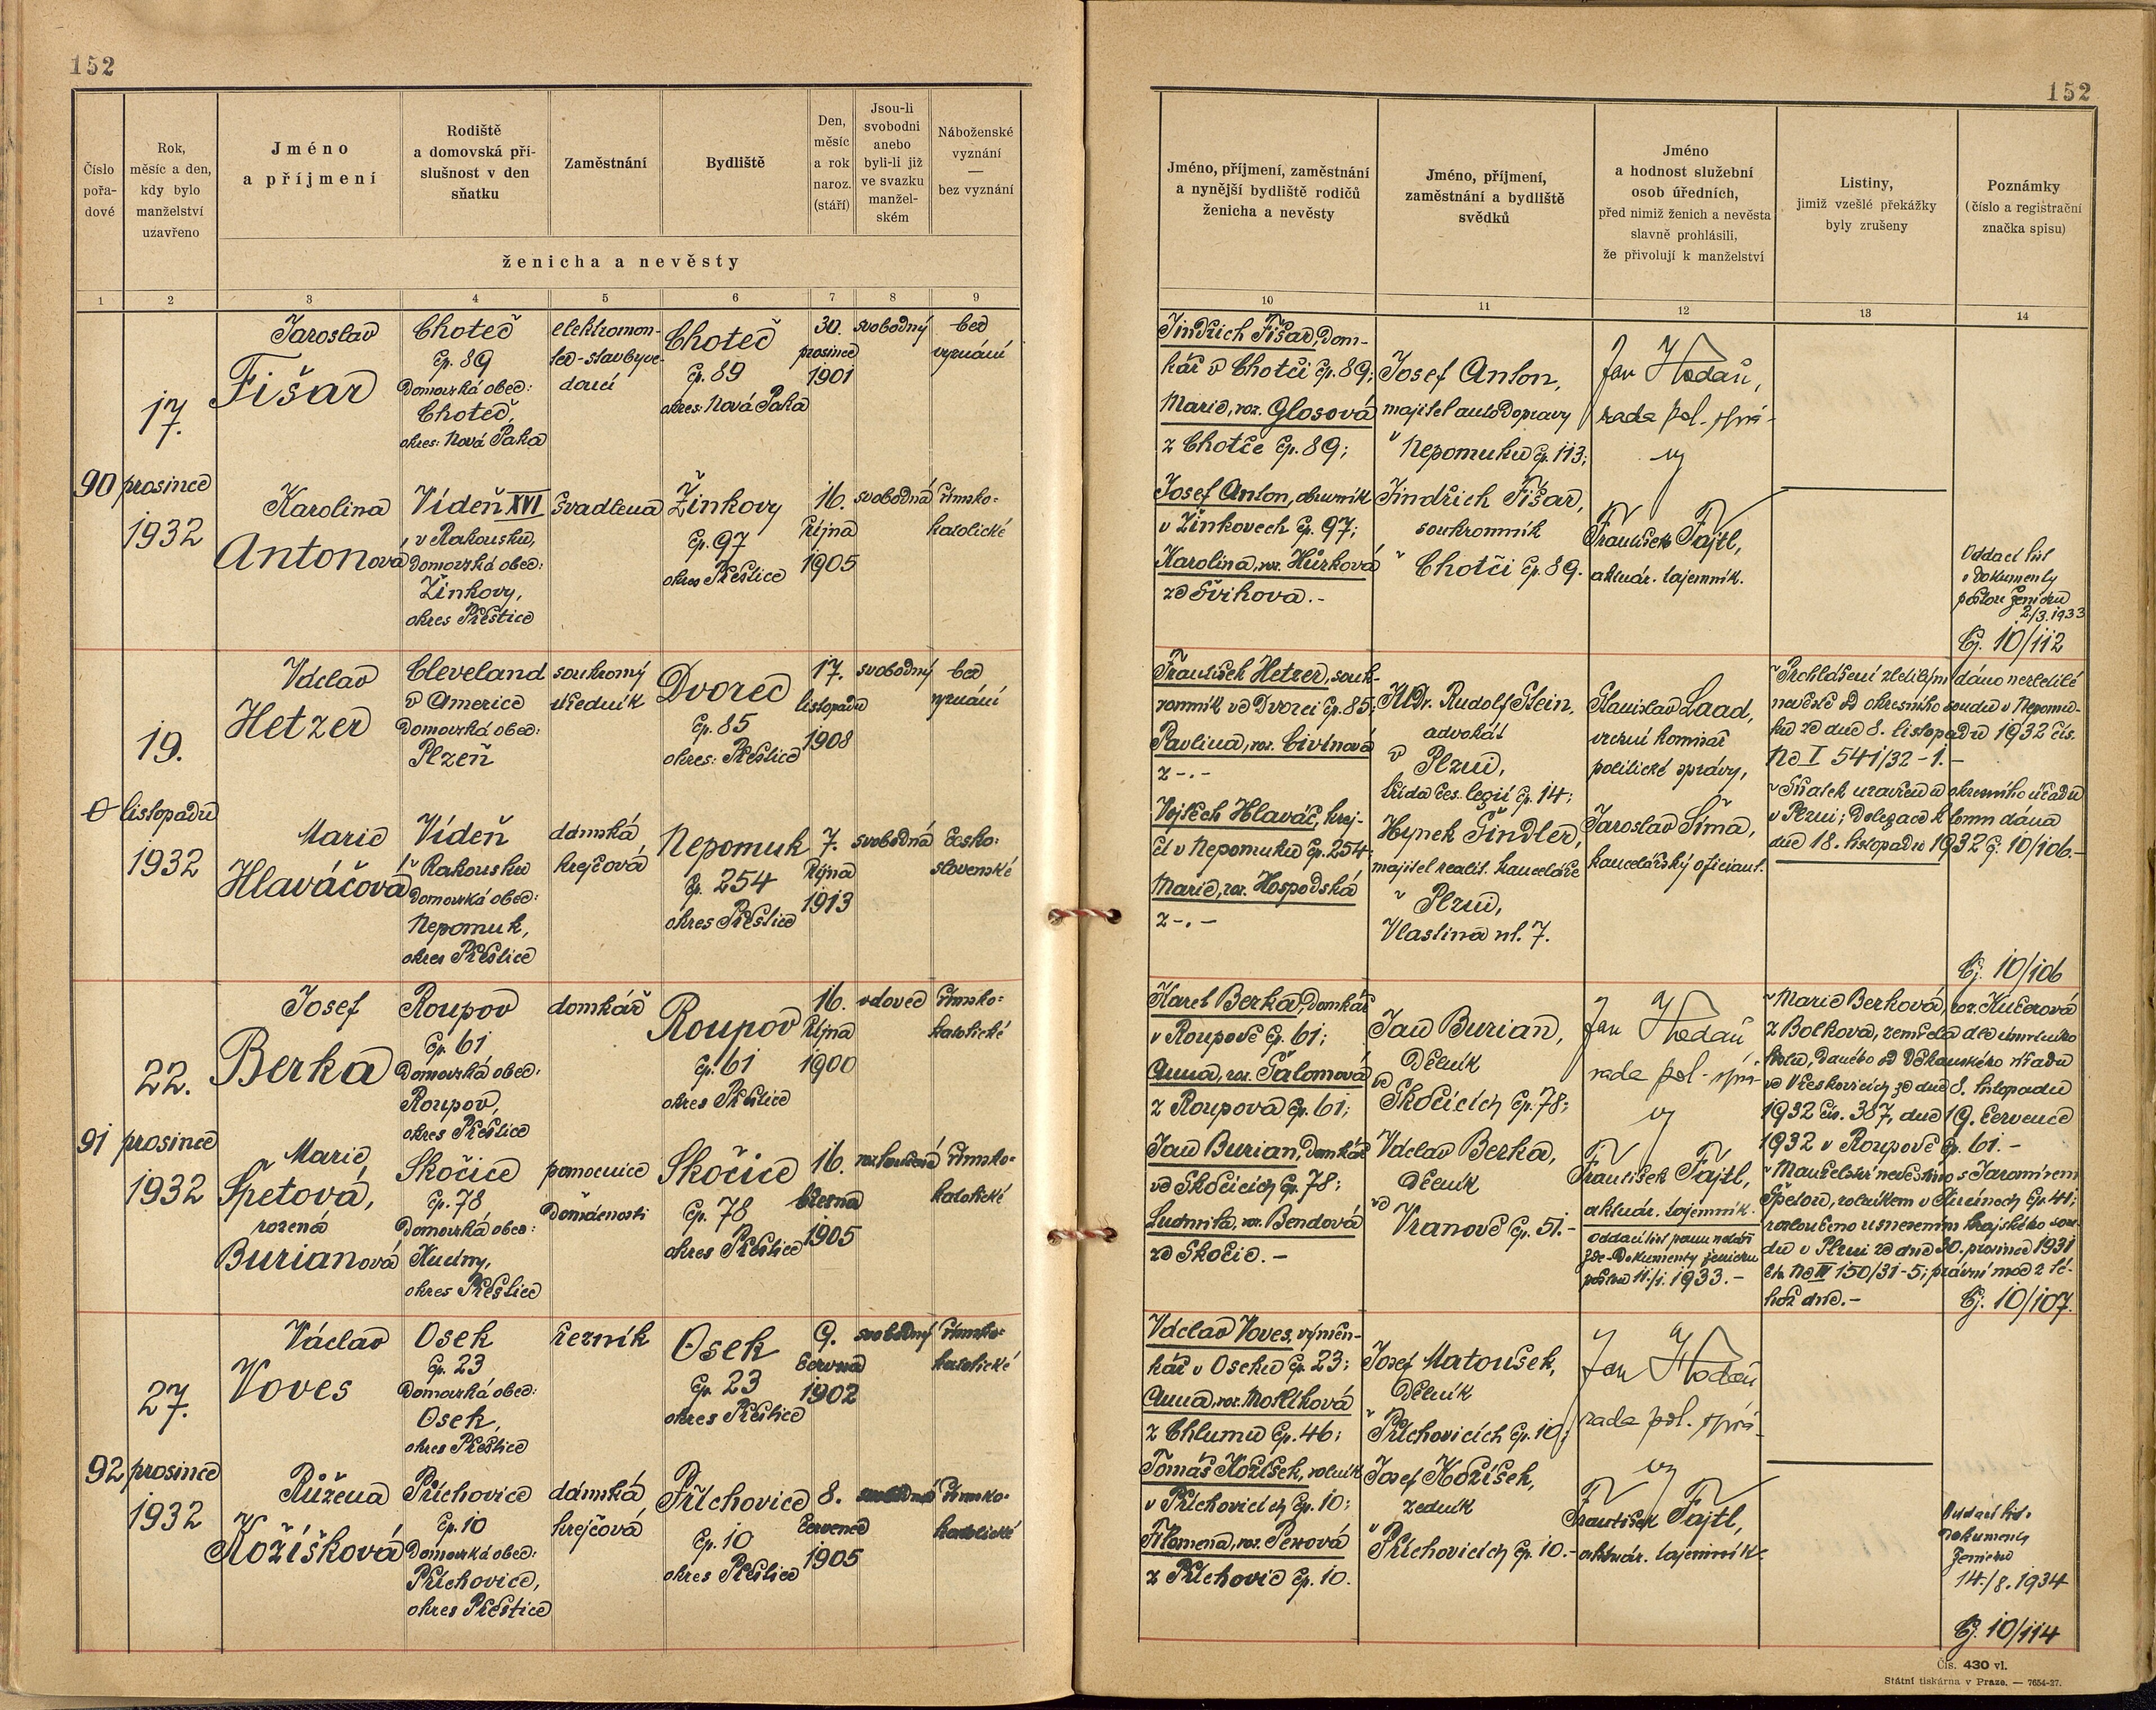 152
152
Číslo pořa- dové
Rok, měsíc a den, kdy bylo manželství uzavřeno
Jméno a příjmení
Rodiště a domovská pří- slušnost v den sňatku
Zaměstnání
Bydliště
Den, měsíc a rok naroz. (stáří)
Jsou-li svobodni anebo byli-li již ve svazku manžel- ském
Náboženské vyznání — bez vyznání
ženicha a nevěsty
Jméno, příjmení, zaměstnání a nynější bydliště rodičů ženicha a nevěsty
Jméno, příjmení, zaměstnání a bydliště svědků
Jméno a hodnost služební osob úředních, před nimiž ženich a nevěsta slavně prohlásili, že přivolují k manželství
Listiny, jimiž vzešlé překážky byly zrušeny
Poznámky (číslo a registrační značka spisu)
1 2 3 4 5 6 7 8 9 10 11 12 13 14
90
17.
prosince
1932
Jaroslav
Fišar
Choteč
čp. 89
Domovská obec:
Choteč,
okres: Nová Paka
elektromon-
ter-stavbyve-
doucí
Choteč
čp. 89
okres: Nová Paka
30.
prosince
1901
svobodný
bez
vyznání
Karolina
Antonová
Vídeň XVI
v Rakousku,
Domovská obec:
Žinkovy,
okres Přeštice
švadlena
Žinkovy
čp. 97
okres Přeštice
16.
října
1905
svobodná
římsko-
katolické
Jindřich Fišar, dom-
kář v Chotči čp. 89;
Marie, roz. Glosová
z Chotče čp. 89;
Josef Anton, obuvník
v Žinkovech čp. 97;
Karolina, roz. Hůrková
ze Švihova.-
Josef Anton,
majitel autodopravy
v Nepomuku čp. 113;
Jindřich Fišar,
soukromník
v Chotči čp. 89.
Jan Hodaň,
rada pol. sprá-
vy
František Fajtl,
aktuár. tajemník.
Oddací list
i dokumenty
poštou ženichu
2/3. 1933
Čj. 10/112
0
19.
listopadu
1932
Václav
Hetzer
Cleveland
v Americe
Domovská obec:
Plzeň
soukromý
úředník
Dvorec
čp. 85
okres: Přeštice
17.
listopadu
1908
svobodný
bez
vyznání
Marie
Hlaváčová
Vídeň
v Rakousku
Domovská obec:
Nepomuk,
okres Přeštice
dámská
krejčová
Nepomuk
čp. 254
okres Přeštice
7.
října
1913
svobodná
česko-
slovenské
František Hetzer, souk-
romník ve Dvorci čp. 85;
Pavlina, roz. Civínová
z -.-
Vojtěch Hlaváč, krej-
čí v Nepomuku čp. 254
Marie, roz. Hospodská
z -.-
JUDr. Rudolf Stein,
advokát
v Plzni,
třída čes. legií čp. 14;
Hynek Šindler,
majitel realit. kanceláře
v Plzni,
Vlastina ul. 7.
Stanislav Laad,
vrchní komisař
politické správy,
Jaroslav Šíma,
kancelářský oficiant.
Prohlášení zletilým dáno nezletilé
nevěstě od okresního soudu v Nepomu-
ku ze dne 8. listopadu 1932 čís.
Nc I 541/32-1.-
Sňatek uzavřen u okresního úřadu
v Plzni; Delegace k tomu dána
dne 18. listopadu 1932 čj. 10/106.-
Čj. 10/106
91
22.
prosince
1932
Josef
Berka
Roupov
čp. 61
Domovská obec:
Roupov,
okres Přeštice
domkář
Roupov
čp. 61
okres Přeštice
16.
října
1900
vdovec
římsko-
katolické
Marie
Špetová,
rozená
Burianová
Skočice
čp. 78
Domovská obec:
okres Přeštice
pomocnice
v domácnosti
Skočice
čp. 78
okres Přeštice
16.
března
1905
rozloučená
římsko-
katolické
Karel Berka, domkář
v Roupově čp. 61;
Anna, roz. Šalomová
z Roupova čp. 61;
Jan Burian, domkář
ve Skočicích čp. 78;
Ludmila, roz. Bendová
ze Skočic.-
Jan Burian,
dělník
ve
Skočicích čp. 78;
Václav Berka,
dělník
ve
Vranově čp. 51.-
Jan Hodaň
rada pol. sprá-
vy
František Fajtl,
aktuár. tajemník.
Dokumenty ženichu
poštou 11./1. 1933.-
Marie Berková, roz. Kučerová
z Bolkova, zemřela dle úmrtního
listu, daného od děkanského úřadu
ve Vřeskovicích ze dne 8. listopadu
1932 čís. 387, dne 19. července
1932 v Roupově čp. 61.-
Manželství nevěstino s Jaromírem
Špetou, rolníkem v čp. 41;
rozloučeno usnesením krajského sou-
du v Plzni ze dne 30. prosince 1931
čís. Nc III 150/31-5; právní moc z té-
hož dne.-
Čj. 10/107.
92
27.
prosince
1932
Václav
Voves
Osek
čp. 23
Domovská obec:
Osek,
okres Přeštice
řezník
Osek
čp. 23
okres Přeštice
9.
června
1902
svobodný
římsko-
katolické
Růžena
Kožíšková
Příchovice
čp. 10
Domovská obec:
Příchovice,
okres Přeštice
dámská
krejčová
Příchovice
čp. 10
okres Přeštice
8.
července
1905
svobodná
římsko-
katolické
Václav Voves, výměn-
kář v Oseku čp. 23;
Anna, roz. Motlíková
z Chlumu čp. 46;
Tomáš Kožíšek, rolník
v Příchovicích čp. 10;
Filomena, roz.
z Příchovic čp. 10.
Josef Matoušek,
dělník
v Příchovicích čp. 10;
Josef Kožíšek,
zedník
v Příchovicích čp. 10.-
Jan Hodaň
rada pol. sprá-
vy
František Fajtl,
aktuár. tajemník
Oddací list i
dokumenty
ženichu
14./8. 1934
Čj. 10/114
Čís. 430 vl.
Státní tiskárna v Praze. — 7654-27.